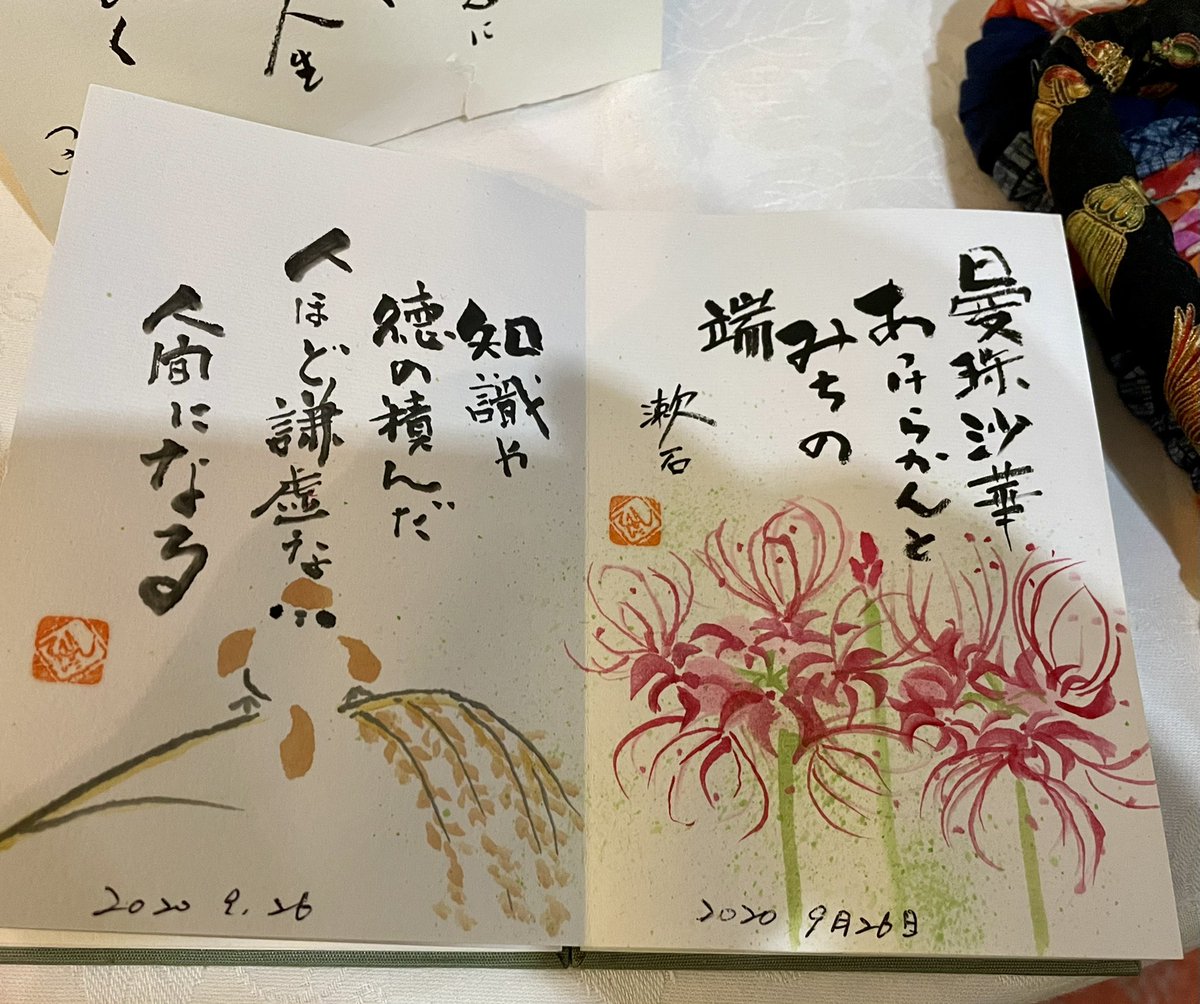 曼珠沙華
あけらかんと
みちの
端
漱石
2020 9月26日
知識や
徳の積んだ
人ほど謙虚な
人間になる
2020 9.26
に
人生
く